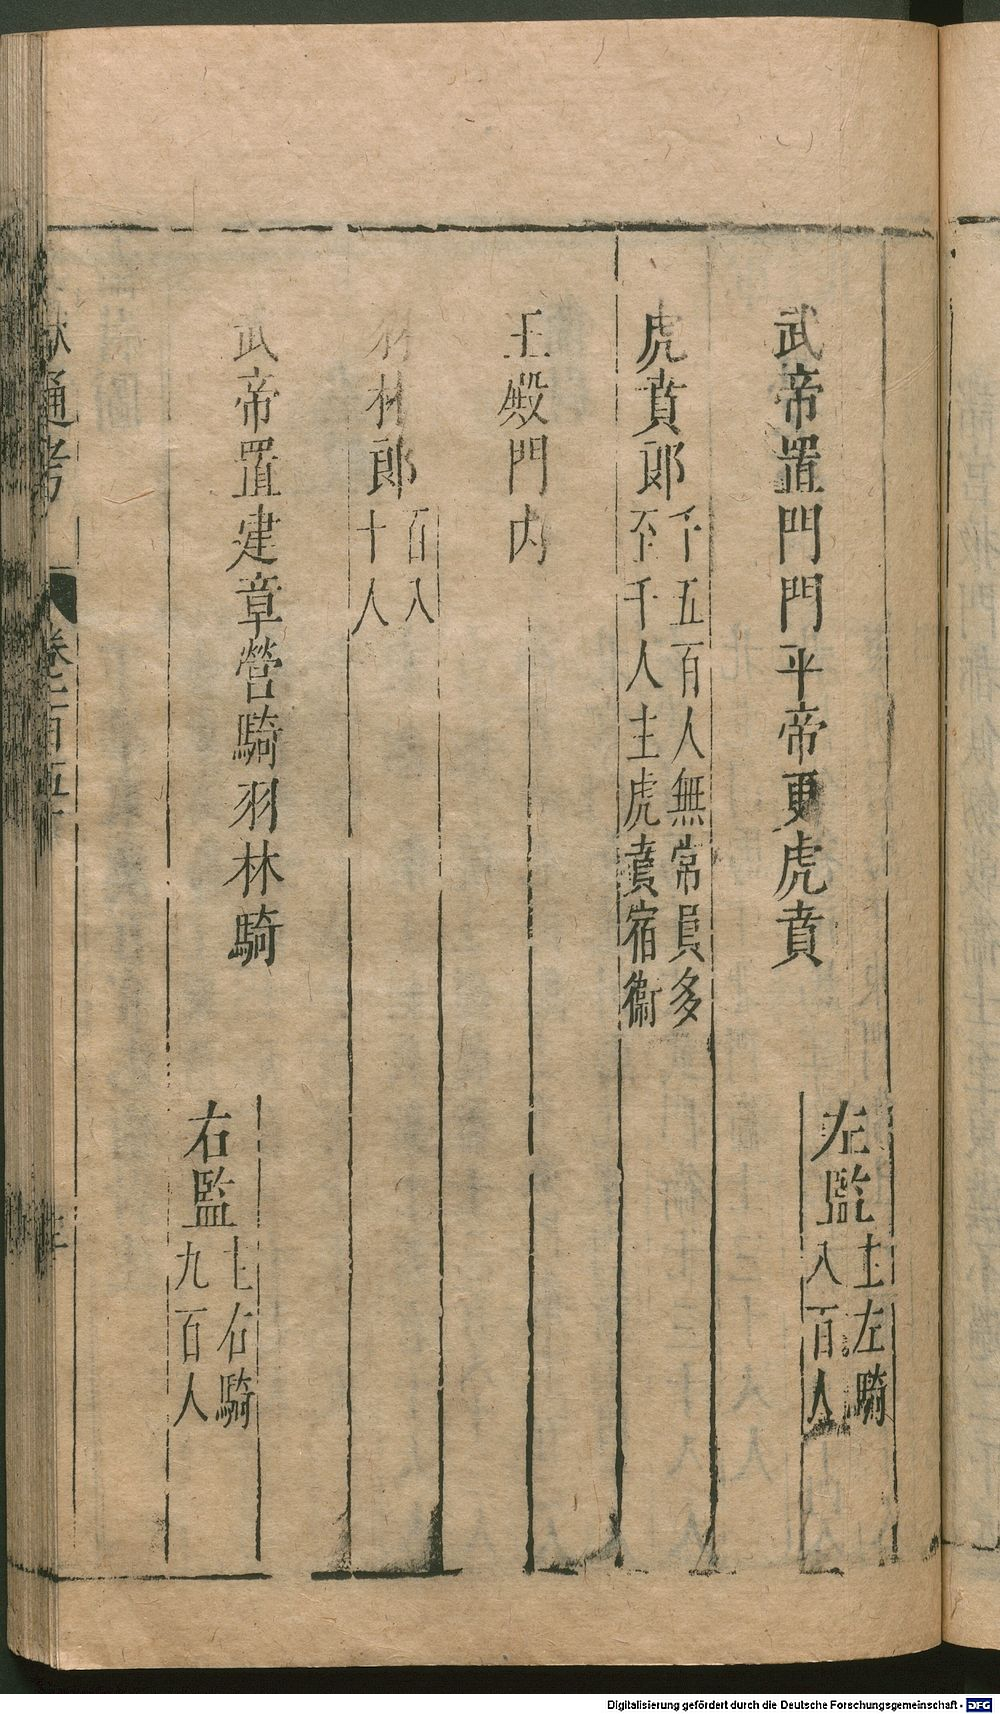 左監主左騎八百人
武帝置門門平帝更虎賁
虎賁郎千五百人無常員多至千人主虎賁宿衞
王殿門內
羽林郎百八十人
武帝置建章營騎羽林騎
右監主右騎九百人
獻通考 卷一百五十
Digitalisierung gefördert durch die Deutsche Forschungsgemeinschaft - DFG